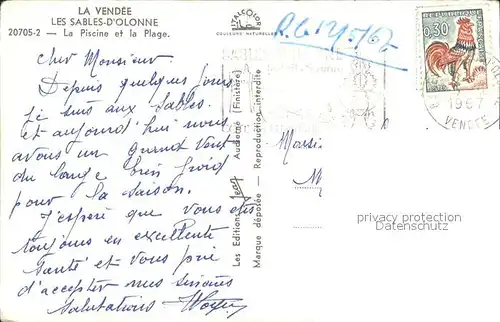 LA VENDÉE
LES SABLES-D'OLONNE
20705-2 - La Piscine et la Plage.
Cher Monsieur.
Depuis quelques jours
je suis aux Sables.
et aujourd'hui nous
avons un grand vent
du large très froid
pour la saison.
J'espère que vous êtes
toujours en excellente
santé et vous prie
d'accepter mes
salutations
COULEURS NATURELLES
Les Editions Jean Audierne (Finistère)
Marque déposée - Reproduction interdite
R.G 12/5/67
0,30
1967
VENDEE
Monsie
M
privacy protection
Datenschutz